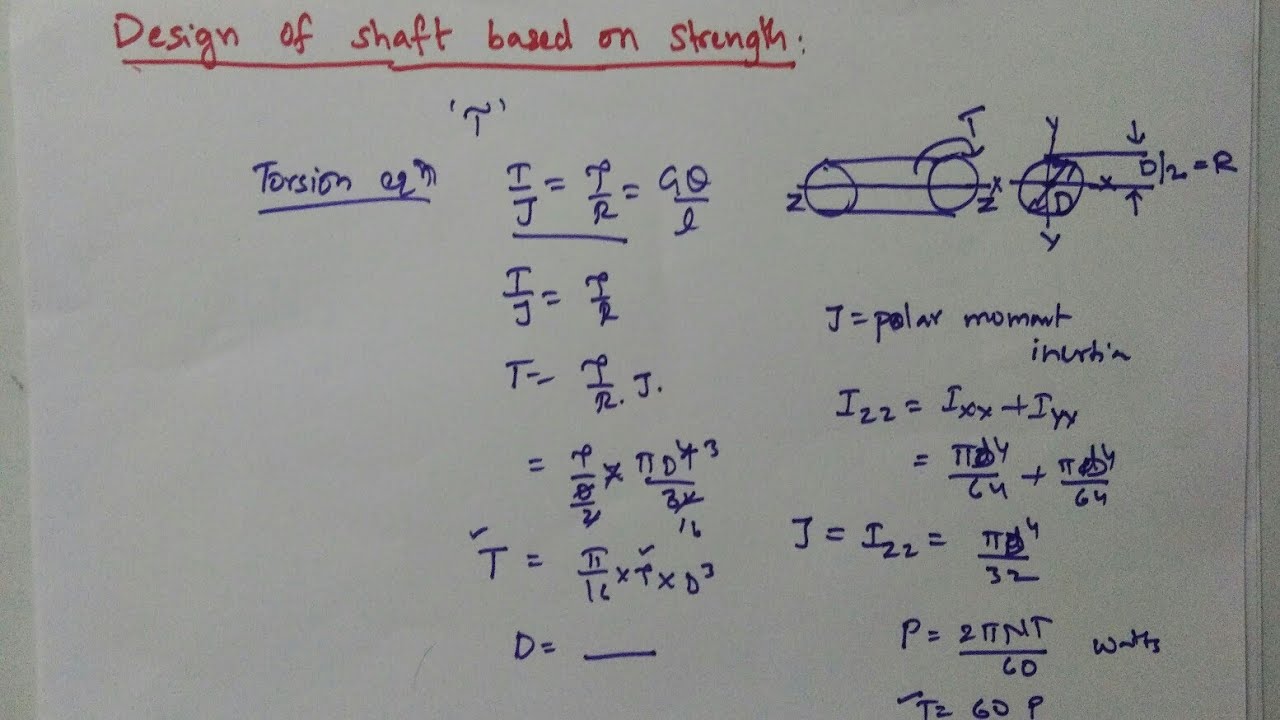 Design of shaft based on strength:
'T'
Torsion eqn T/J = τ/R = Gθ/l
T/J = τ/R
T = τ/R . J.
= τ/(D/2) × πD⁴³/32 16
✓T = π/16 × ✓τ × D³
D = ___
T
Z Z
Y
X X
D
Y
D/2 = R
J = polar momant
inertia
Izz = Ixx + Iyy
= πD⁴/64 + πD⁴/64
J = Izz = πD⁴/32
P = 2πNT/60 watts
✓T = 60 P